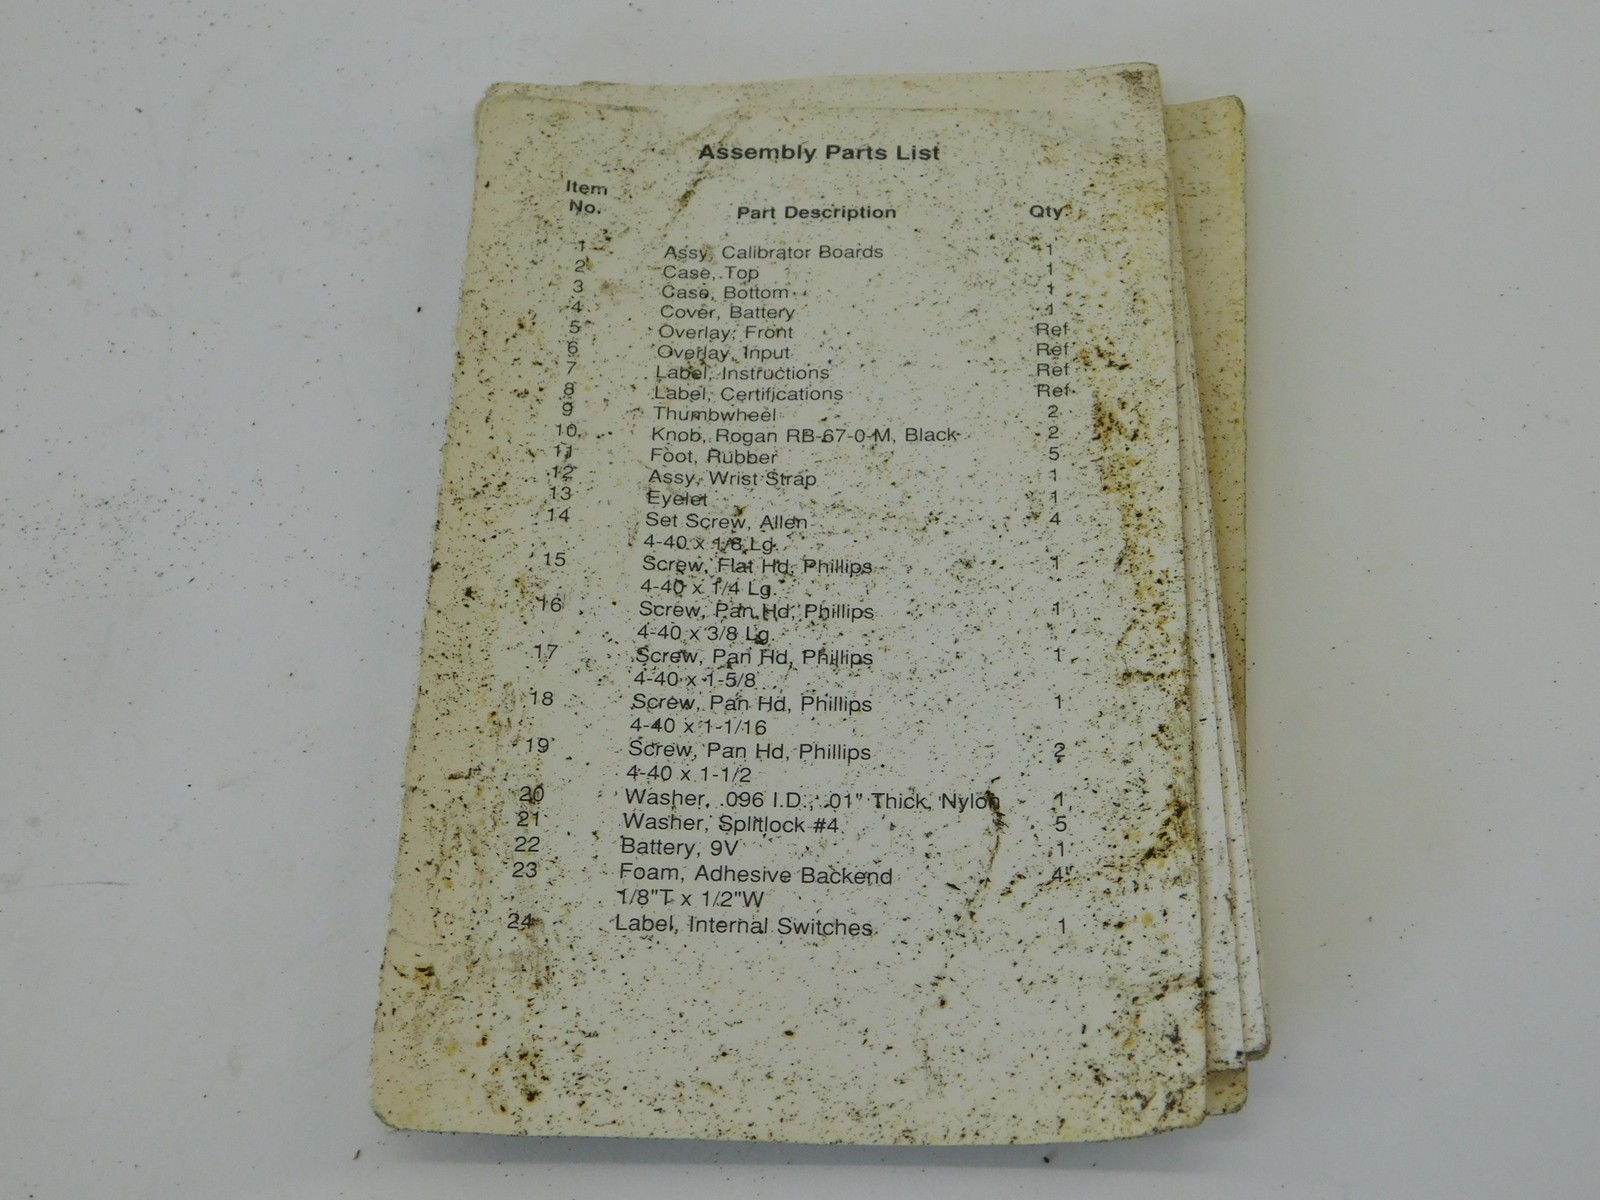 Assembly Parts List
Item
No. Part Description Qty
1 Assy, Calibrator Boards 1
2 Case, Top 1
3 Case, Bottom 1
4 Cover, Battery 1
5 Overlay, Front Ref
6 Overlay, Input Ref
7 Label, Instructions Ref
8 Label, Certifications Ref
9 Thumbwheel 2
10 Knob, Rogan RB-67-0-M, Black 2
11 Foot, Rubber 5
12 Assy, Wrist Strap 1
13 Eyelet 1
14 Set Screw, Allen 4
4-40 x 1/8 Lg.
15 Screw, Flat Hd, Phillips 1
4-40 x 1/4 Lg.
16 Screw, Pan Hd, Phillips 1
4-40 x 3/8 Lg.
17 Screw, Pan Hd, Phillips 1
4-40 x 1-5/8
18 Screw, Pan Hd, Phillips 1
4-40 x 1-1/16
19 Screw, Pan Hd, Phillips 2
4-40 x 1-1/2
20 Washer, .096 I.D., .01" Thick, Nylon 1
21 Washer, Splitlock #4 5
22 Battery, 9V 1
23 Foam, Adhesive Backend 4"
1/8"T x 1/2"W
24 Label, Internal Switches 1